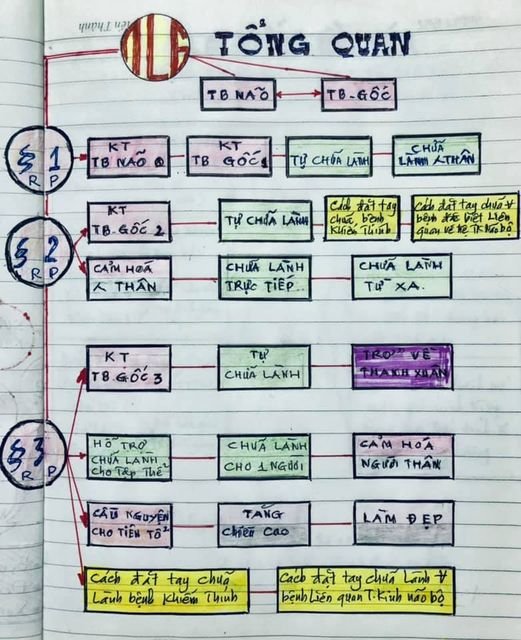 TỔNG QUAN
TB NÃO
TB-GỐC
§ 1
R P
KT
TB NÃO
KT
TB GỐC 1
TỰ CHỮA LÀNH
CHỮA
LÀNH THÂN
§ 2
R P
KT
TB-GỐC 2
TỰ CHỮA LÀNH
Cách đặt tay
chữa bệnh
Khiếm Thính
Cách đặt tay chữa
bệnh đặc biệt Liên
quan về hệ T.K não bộ
CẢM HOÁ
THÂN
CHỮA LÀNH
TRỰC TIẾP
CHỮA LÀNH
TỪ XA.
§ 3
R P
KT
TB.GỐC 3
TỰ
CHỮA LÀNH
TRỞ VỀ
THANH XUÂN
HỖ TRỢ
CHỮA LÀNH
CHO TẬP THỂ
CHỮA LÀNH
CHO 1 NGƯỜI
CẢM HOÁ
NGƯỜI THÂN
CẦU NGUYỆN
CHO TIÊN TỔ
TĂNG
CHIỀU CAO
LÀM ĐẸP
Cách đặt tay chữa
Lành bệnh Khiếm Thính
Cách đặt tay chữa Lành
bệnh Liên quan T.Kinh não bộ